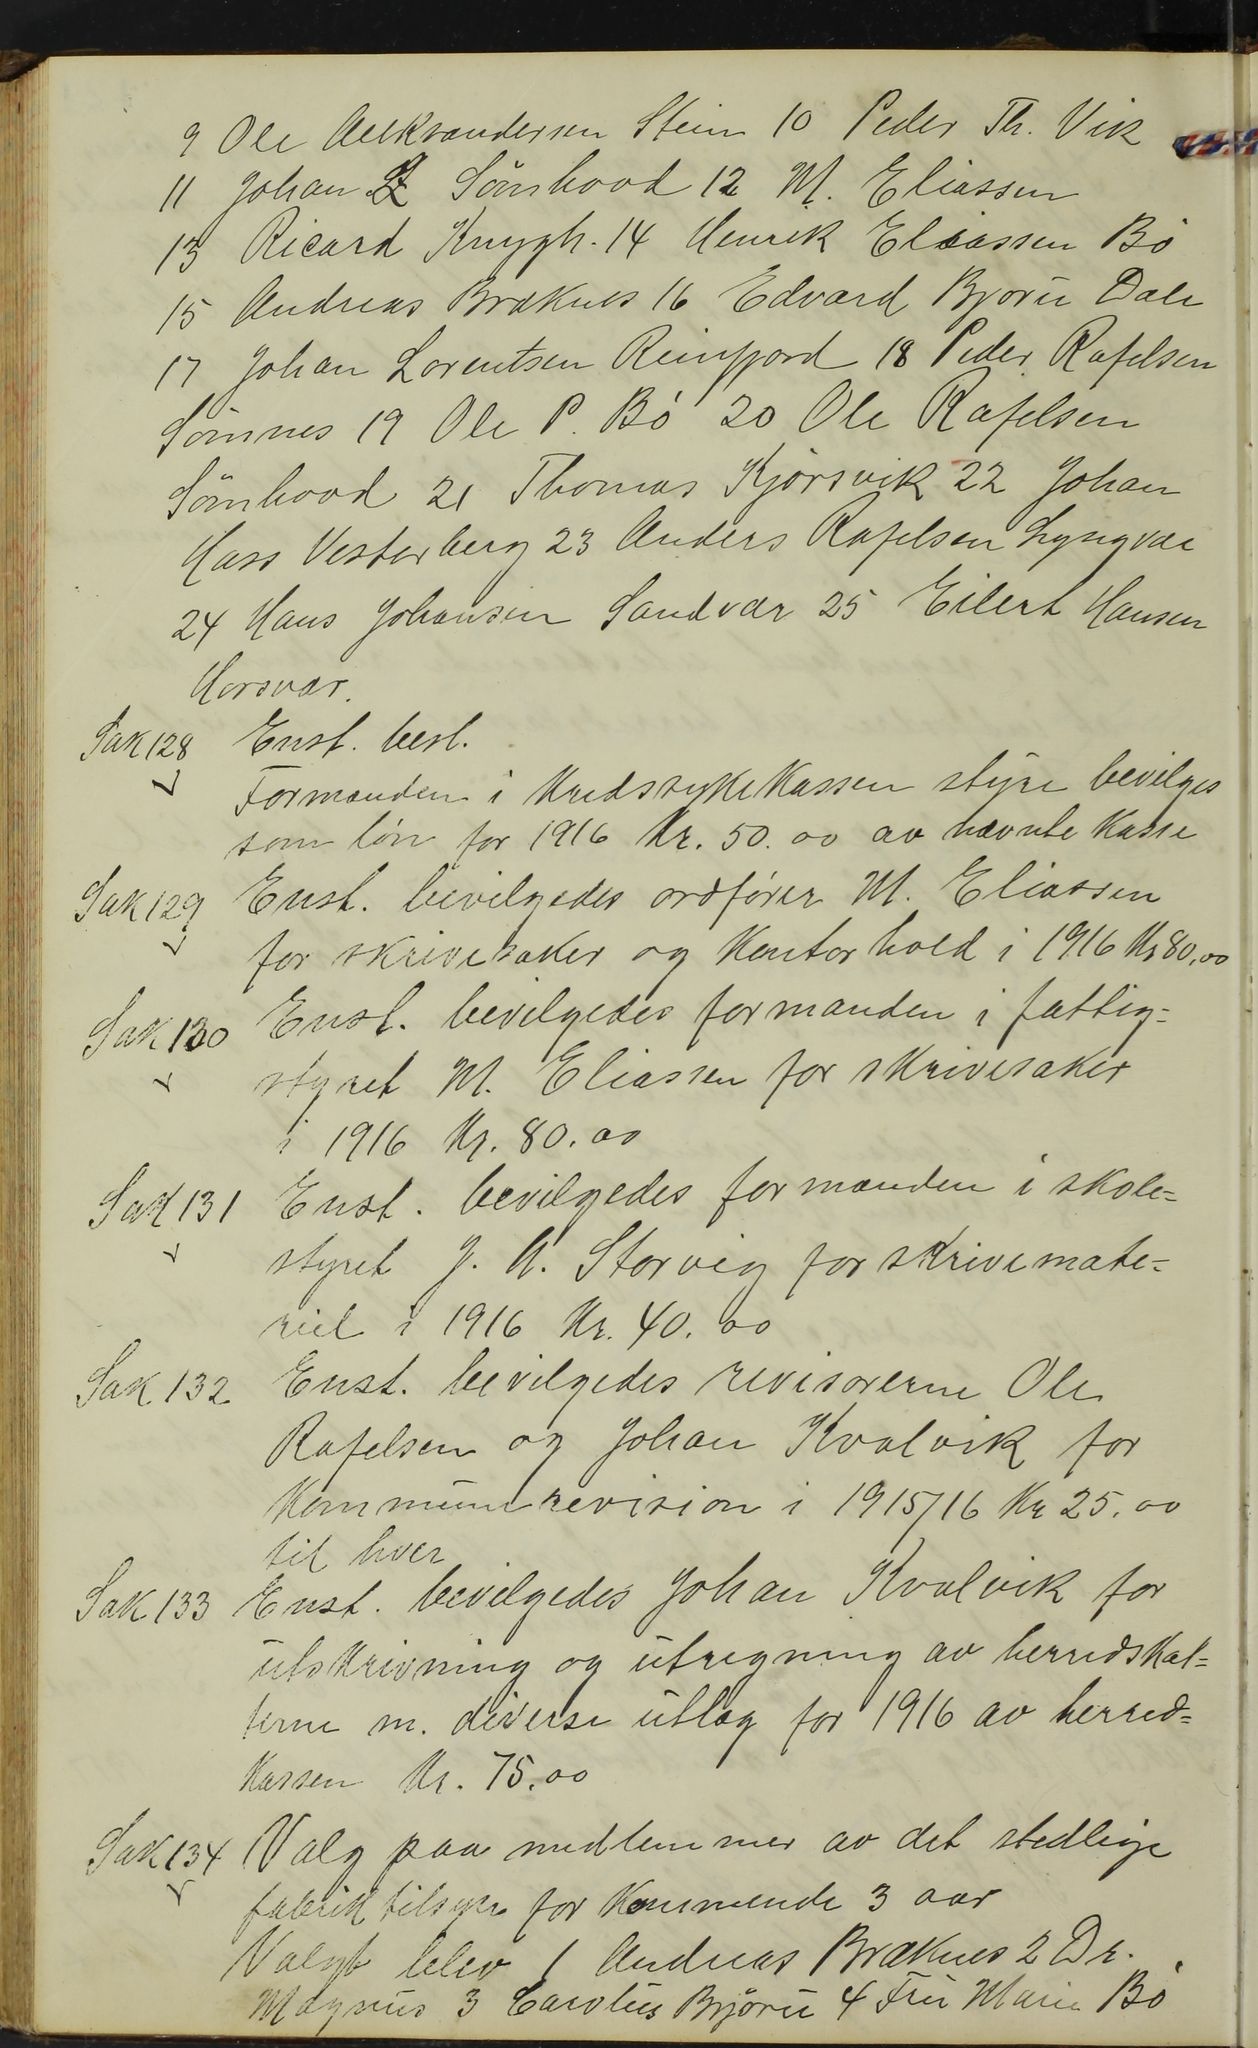 9 Ole Aleksandersen Stein 10 Peder Th. Vik
11 Johan Z Sömhovd 12 M. Eliassen
13 Ricard Krygh. 14 Henrik Eliassen Bó
15 Andreas Bræknes 16 Edvard Bjorü Dale
17 Johan Lorentsen Reinfjord 18 Peder Rafelsen
Sömnes 19 Ole P. Bó 20 Ole Rafelsen
Sömhovd 21 Thomas Kjörsvik 22 Johan
Hass Vesterberg 23 Anders Rafelsen Lyngvær
24 Hans Johansen Sandvær 25 Eilert Hansen
Horsvær.
Sak 128 Enst. besl.
Formanden i Kredssykekassen styre bevilges
som lön for 1916 Kr. 50.00 av nævnte Kasse
Sak 129 Enst. bevilgedes ordförer M. Eliassen
for skrivesaker og Kontorhold i 1916 Kr 80,00
Sak 130 Enst. bevilgedes formanden i fattig=
styret M. Eliassen for skrivesaker
i 1916 Kr. 80.00
Sak 131 Enst. bevilgedes formanden i skole=
styret J. A. Storvig for skrivemate=
riel i 1916 Kr. 40.00
Sak 132 Enst. bevilgedes revisorerne Ole
Rafelsen og Johan Kvalvik for
Kommunerevision i 1915/16 Kr 25.00
til hver
Sak 133 Enst. bevilgedes Johan Kvalvik for
utskrivning og utregning av herredskat=
terne m. diverse utlæg for 1916 av herred=
Kassen Kr. 75.00
Sak 134 Valg paa medlemmer av det stedlige
fabriktilsyn for Kommende 3 aar
Valgt blev 1 Andreas Bræknes 2 Dr.
Magnus 3 Carolus Bjørü 4 Frü Marie Bó